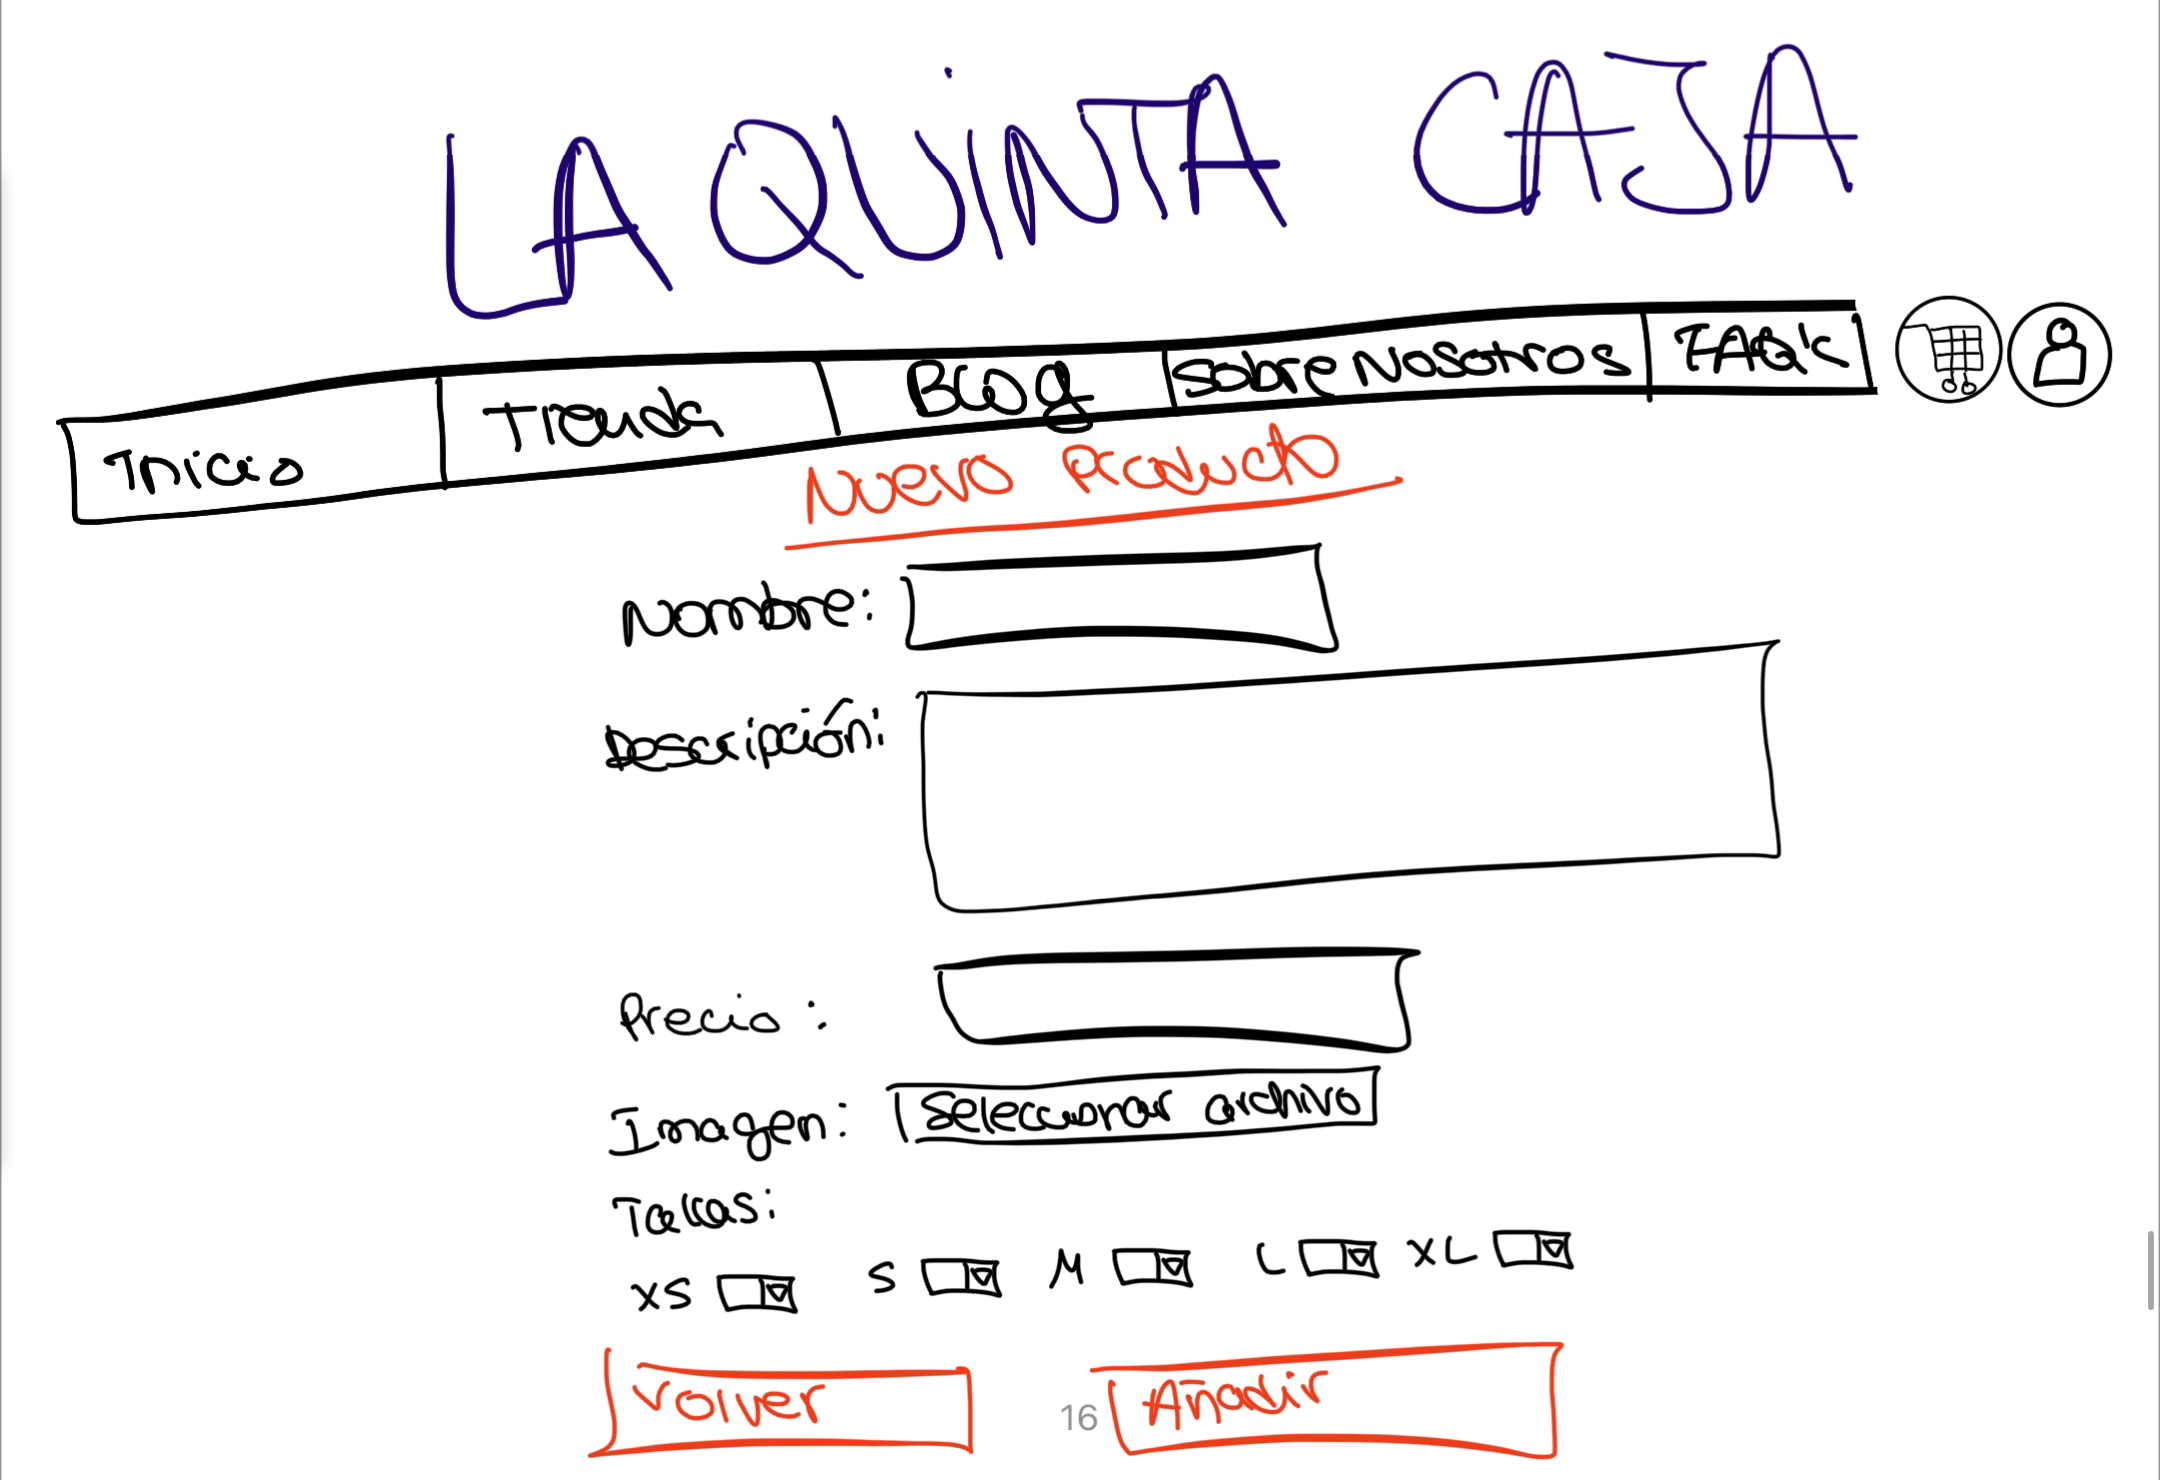 LA QUINTA CAJA
Inicio Tienda Blog Sobre Nosotros FAQ's
Nuevo Producto
Nombre:
Descripción:
Precio :
Imagen: Seleccionar archivo
Tallas:
XS S M L XL
Volver 16 Añadir